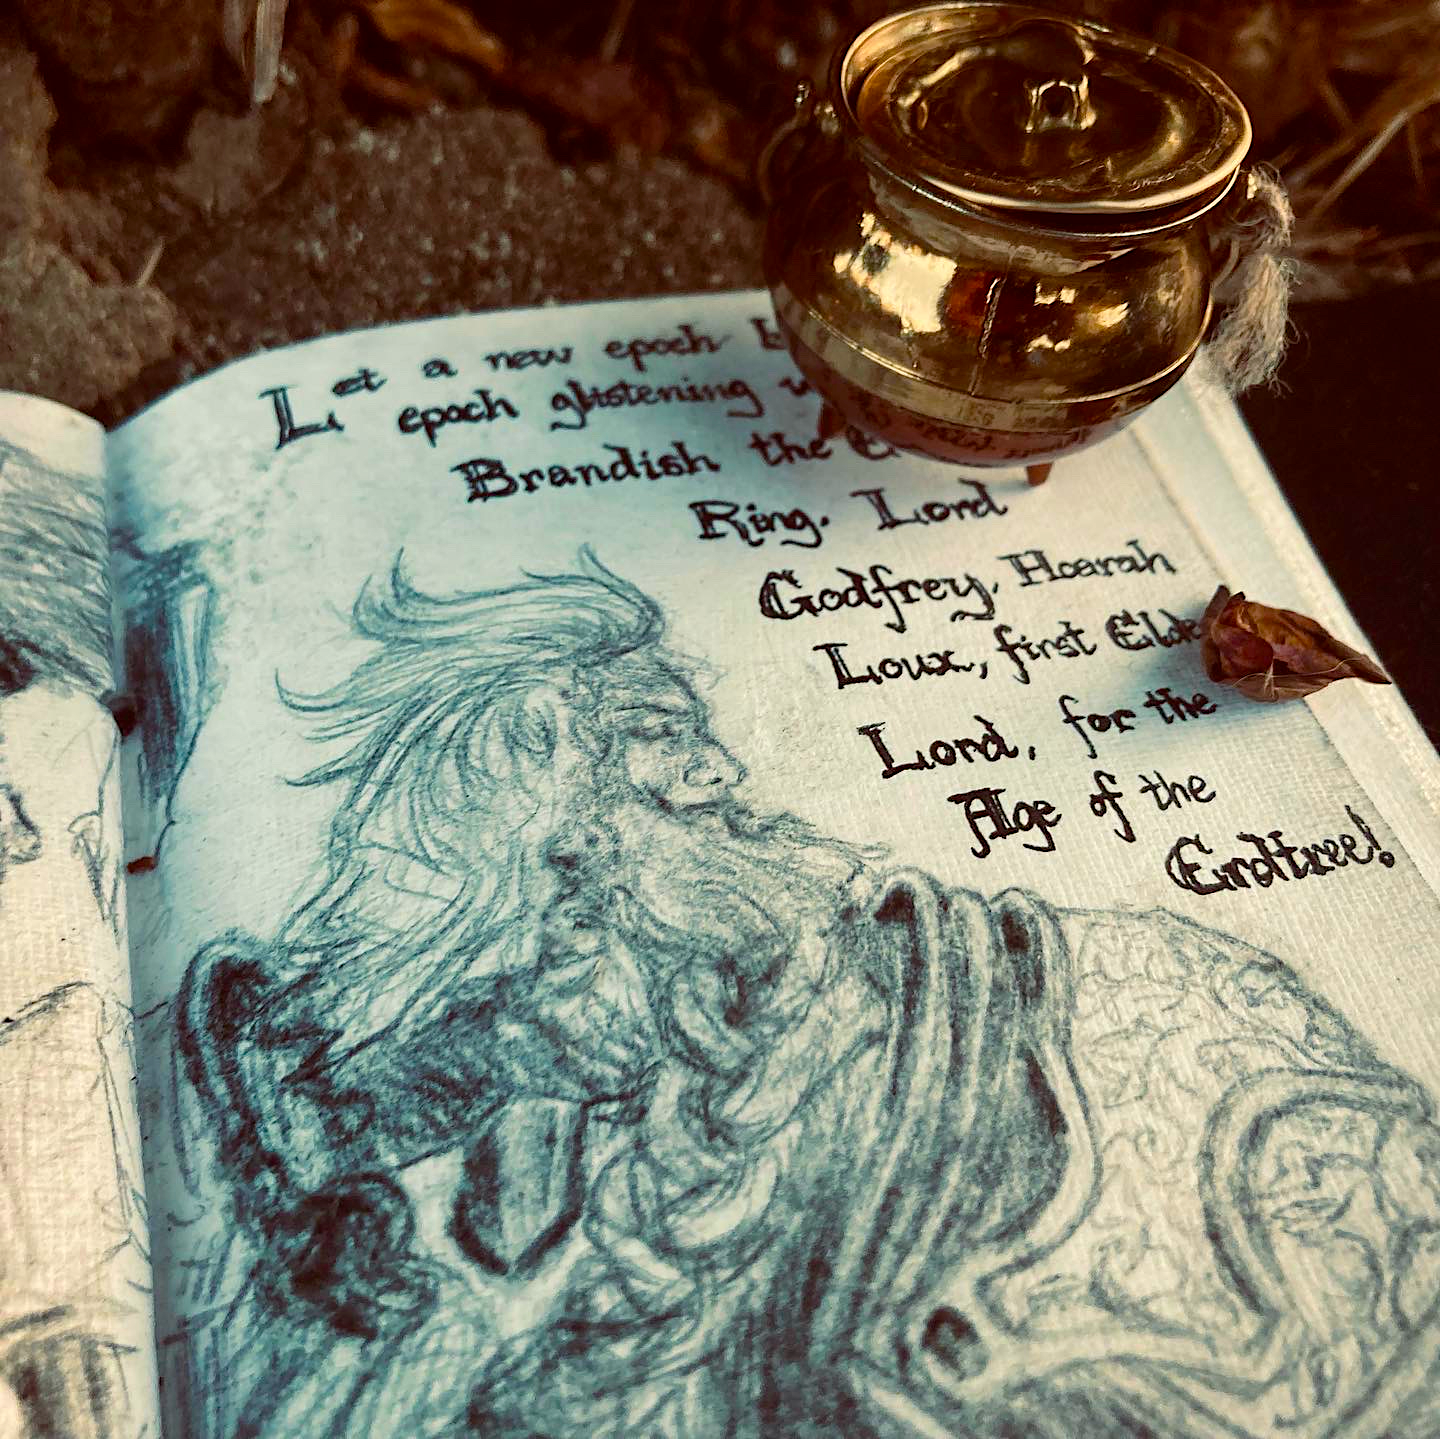 Let a new epoch
epoch glistening
Brandish the
Ring. Lord
Godfrey, Hoarah
Loux, first
Lord, for the
Age of the
Erdtree!